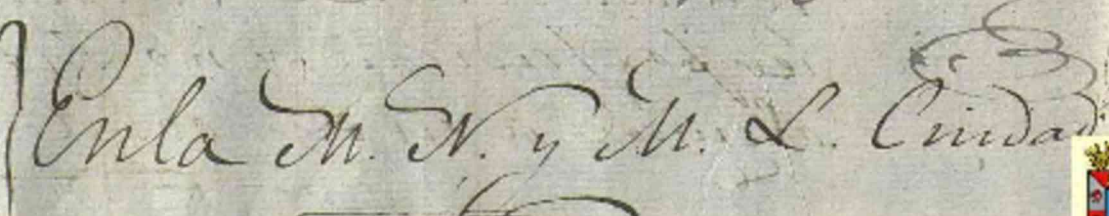 Enla M. N. y M. L. Ciudad